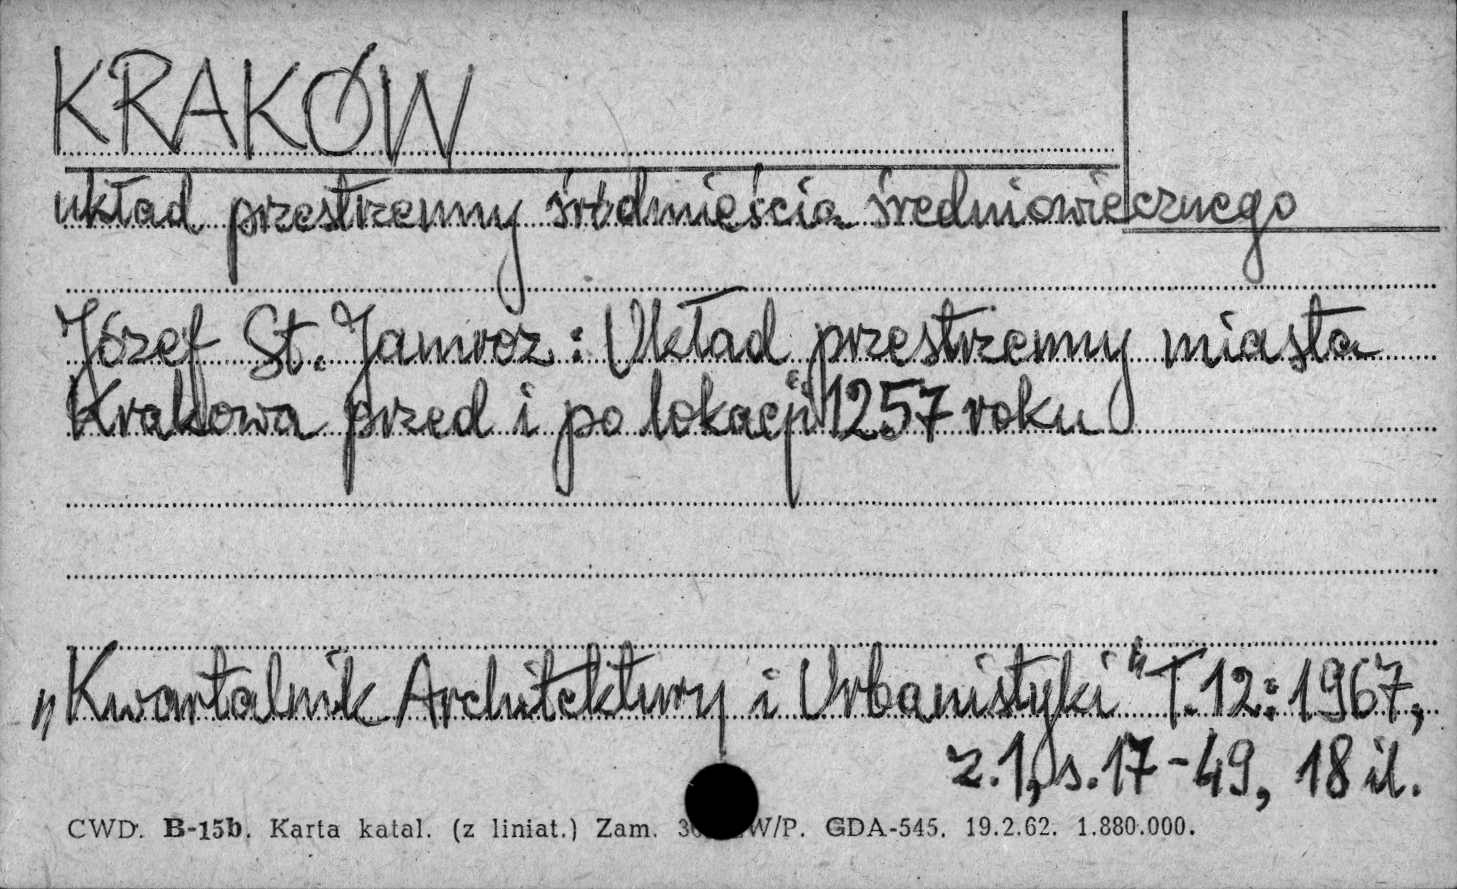 KRAKÓW
układ przestrzenny śródmieścia średniowiecznego
Józef St. Jamroz: Układ przestrzenny miasta
Krakowa przed i po lokacji 1257 roku
„Kwartalnik Architektury i Urbanistyki" T. 12: 1967,
z. 1, s. 17-49, 18 il.
CWD. B-15b. Karta katal. (z liniat.) Zam. W/P. GDA-545. 19.2.62. 1.880.000.